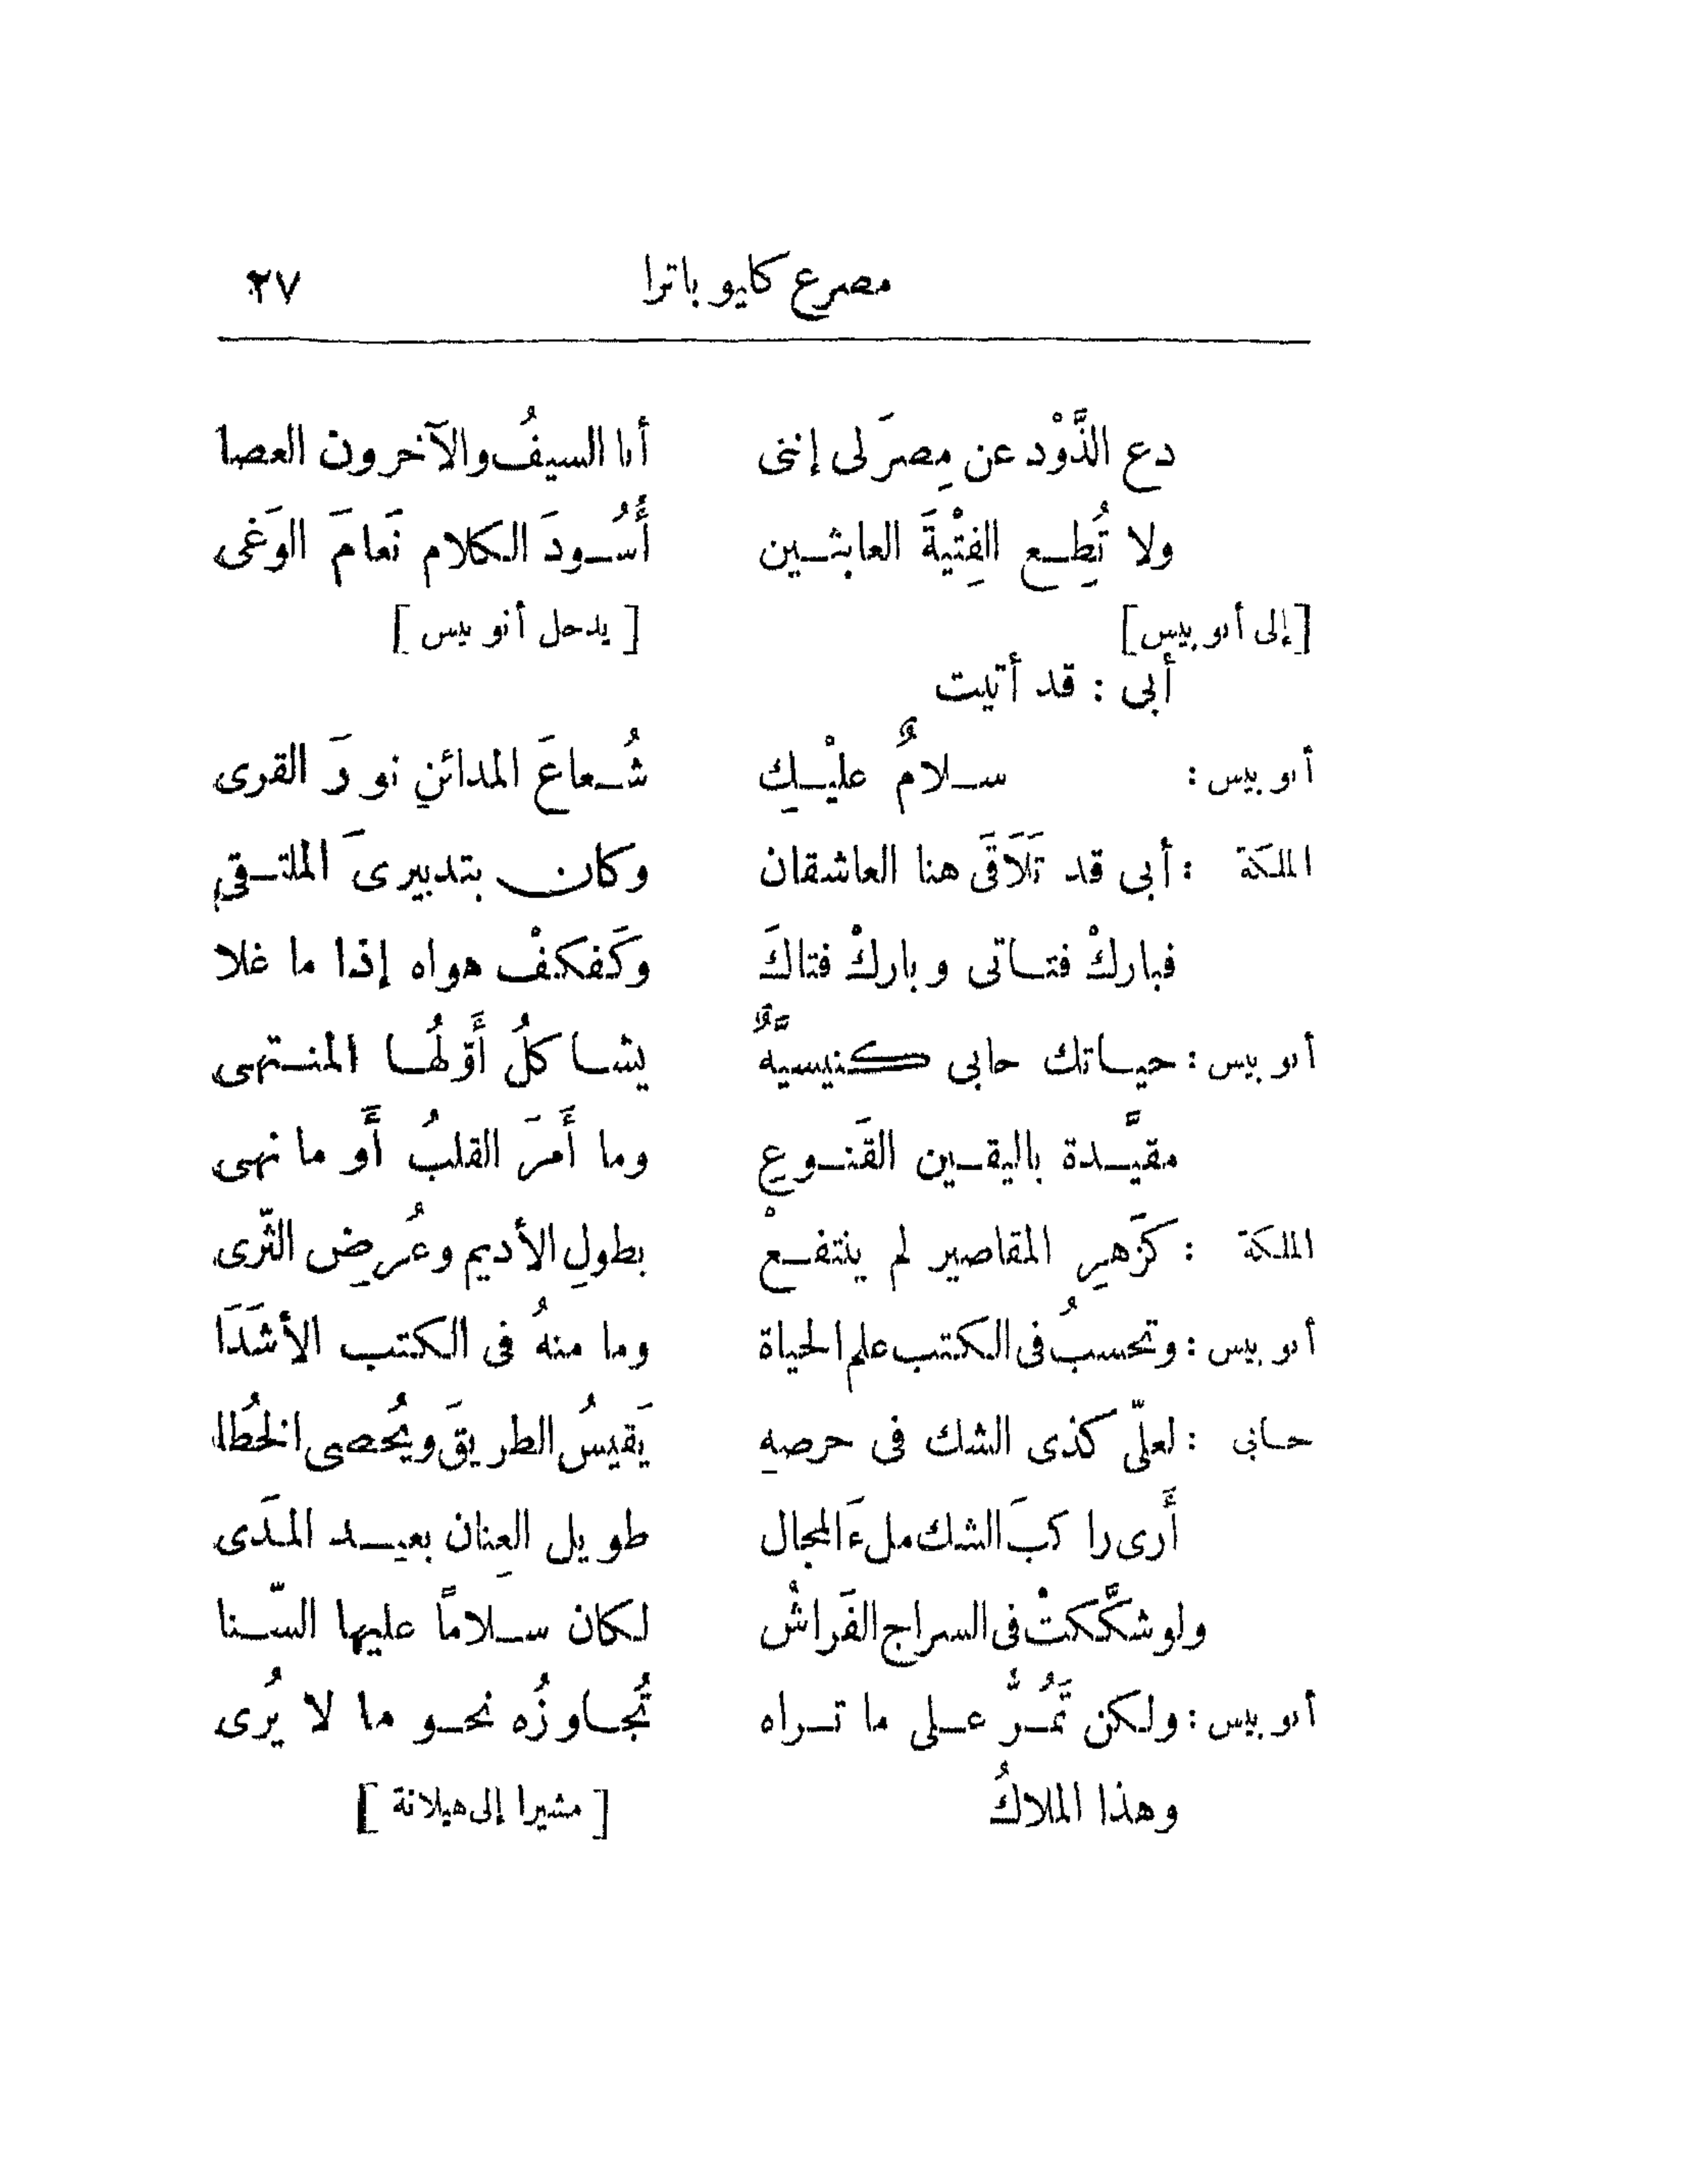 مصرع كليوباترا ٢٧
دع الذَّوْد عن مِصرَ لى إننى أنا السيفُ والآخرون العصا
ولا تُطِع الفِتْيةَ العابثين أُسُودَ الكلام نَعامَ الوَغى
[إلى أنوبيس] [يدخل أنوبيس]
أبى : قد أتيت
أنوبيس : سلامٌ عليْكِ شُعاعَ المدائنِ نورَ القرى
الملكة : أبى قد تَلَاقَى هنا العاشقان وكان بتدبيرىَ الملتقى
فباركْ فتاتى وباركْ فتاكَ وكَفكفْ هواه إذا ما غلا
أنوبيس : حياتك حابى كنيسيَّةٌ يشاكلُ أَوّلهُا المنتهى
مقيَّدة باليقين القَنوعِ وما أَمرَ القلبُ أَو ما نهى
الملكة : كزَهرِ المقاصير لم ينتفعْ بطولِ الأديم وعُرضِ الثّرى
أنوبيس : وتحسبُ فى الكتب علم الحياة وما منهُ فى الكتب الأشَدَا
حابى : لعلّ كذى الشك فى حرصهِ يَقيسُ الطريقَ ويُحصى الخُطا
أَرى راكبَ الشك ملءَ المجال طويل العِنان بعيد المَدَى
ولو شكَّكتْ فى السراج الفَراشْ لكان سلاماً عليها السّنا
أنوبيس : ولكن تَمُرُّ على ما تراه تُجاوزُه نحو ما لا يُرى
وهذا الملاكُ [مشيرا إلى هيلانة]